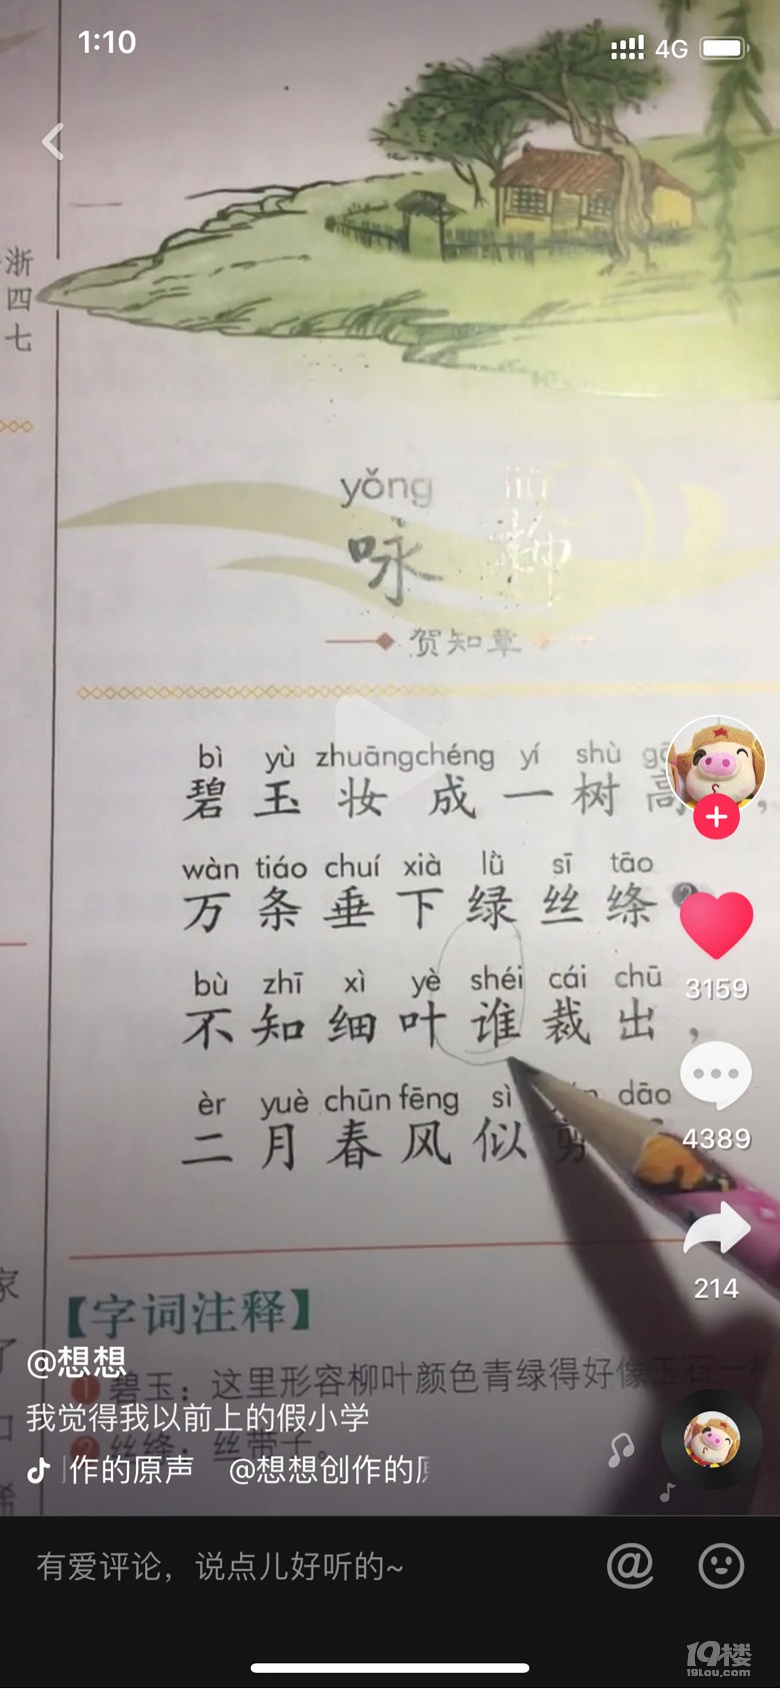 1:10
4G
浙
四
七
yǒng liǔ
咏 柳
贺知章
bì yù zhuāngchéng yí shù
碧玉妆成一树高，
wàn tiáo chuí xià lǜ sī tāo
万条垂下绿丝绦
bù zhī xì yè shéi cái chū
不知细叶谁裁出，
èr yuè chūn fēng sì dāo
二月春风似剪
3159
4389
214
【字词注释】
@想想
1 碧玉：这里形容柳叶颜色青绿得好像玉石一
我觉得我以前上的假小学
2 丝绦：丝带子。
作的原声 @想想创作的
有爱评论，说点儿好听的~
19楼
19lou.com